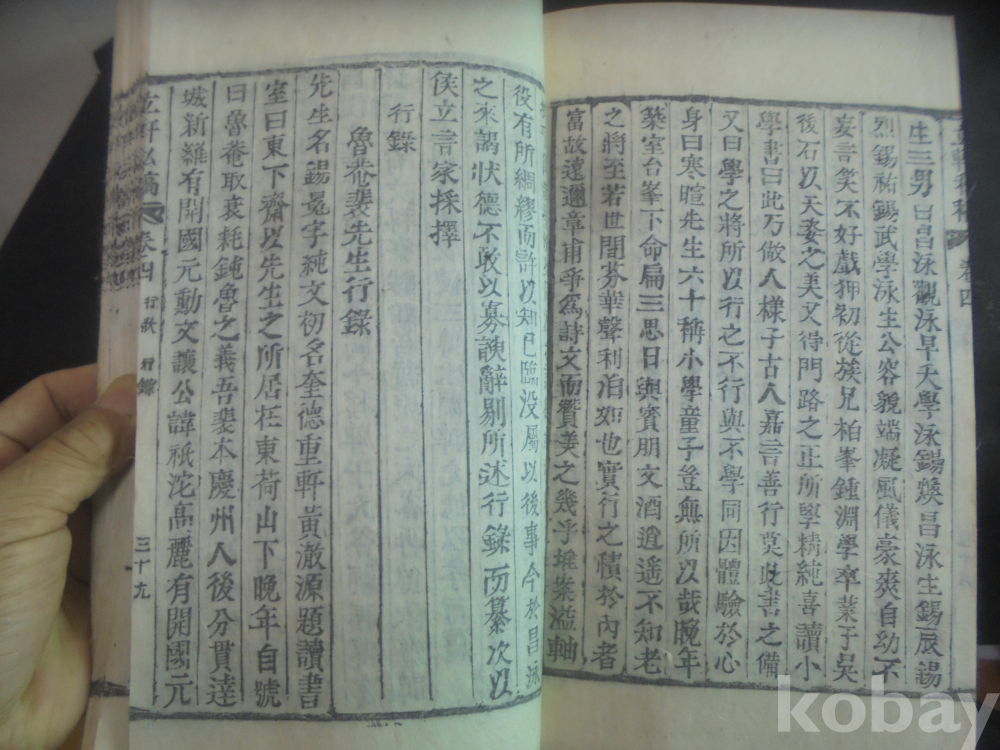 生三男曰昌泳觀泳早夭學泳錫煥昌泳生錫辰錫
烈錫祐錫武學泳生公容貌端凝風儀豪爽自幼不
妄言笑不好戲狎初從族兄柏峯鍾淵學卒業于吳
後石以天姿之美又得門路之正所學精純喜讀小
學書曰此乃做人樣子古人嘉言善行莫此書之備
又曰學之將所以行之不行與不學同因體驗於心
身曰寒暄先生六十稱小學童子豈無所以哉晚年
築室台峯下命扁三思日與賓朋文酒逍遥不知老
之將至若世間芬華聲利泊如也實行之積於內者
富故遠邇章甫爭爲詩文而贊美之幾乎堆案溢軸
役有所綢繆而許以知己臨没屬以後事今於昌泳
之來謁狀德不敢以寡諛辭剔所述行錄而纂次以
俟立言家採擇
行錄
魯菴裴先生行錄
先生名錫冕字純文初名奎德重軒黃澈源題讀書
室曰東下齋以先生之所居在東荷山下晚年自號
曰魯菴取衰耗鈍魯之義吾裴本慶州人後分貫達
城新羅有開國元勳文讓公諱祇沱高麗有開國元
立軒私稿
卷四
行狀
行錄
三十九
kobay